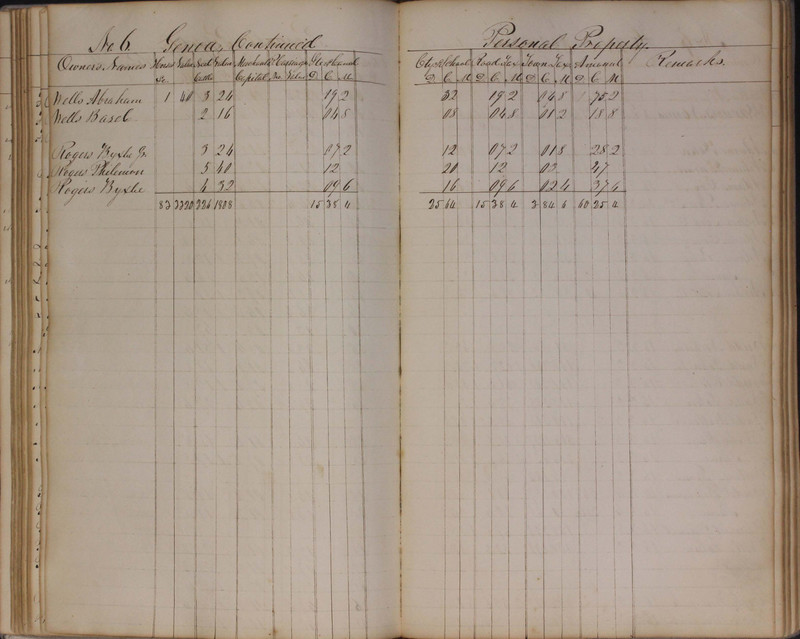 No 6. Geneva, Continued Personal Property.
Owners. Names Horses Value Neat Value Merchants Carriages Do State & County & School Road Tax Town Tax Amount Remarks.
No. Cattle Capital No Value D C M D C M D C M D C M D C M
Wells Abraham 1 40 3 24 19 2 32 19 2 04 8 75 2
Wells Basol 2 16 04 8 08 04 8 01 2 18 8
Rogers Byxbe Jr. 3 24 07 2 12 07 2 01 8 28 2
Rogers Philemon 5 40 12 20 12 03 47
Rogers Byxbe 4 32 09 6 16 09 6 02 4 37 6
83 3320 226 1808 15 38 4 25 64 15 38 4 3 84 6 60 25 4